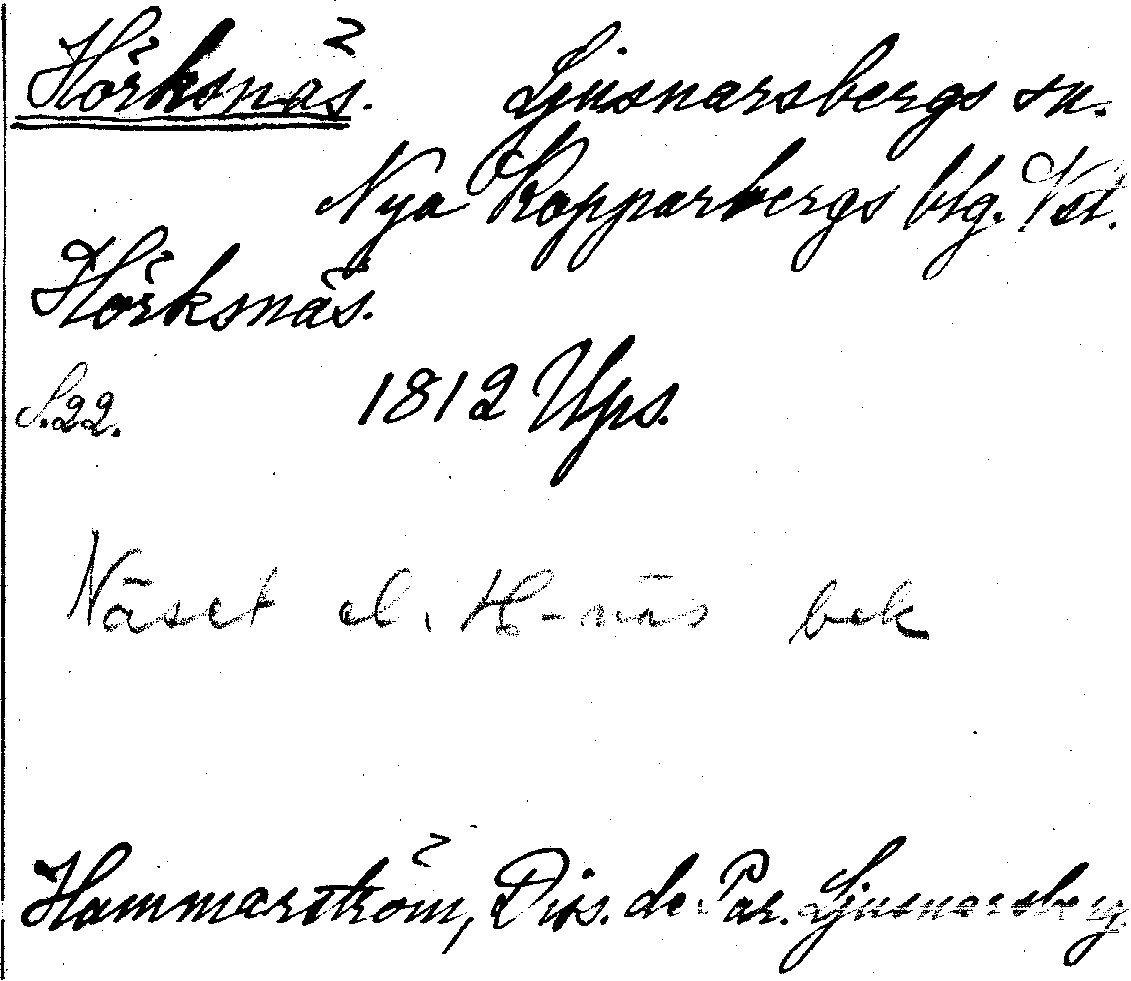 Hörksnäs. Ljusnarsbergs sn.
Nya Kopparbergs blg. Vstl.
Hörksnäs.
S.22. 1812 Ups.
Näset el. H-näs bek
Hammarström, Diss. de Par. Ljusnarsberg.